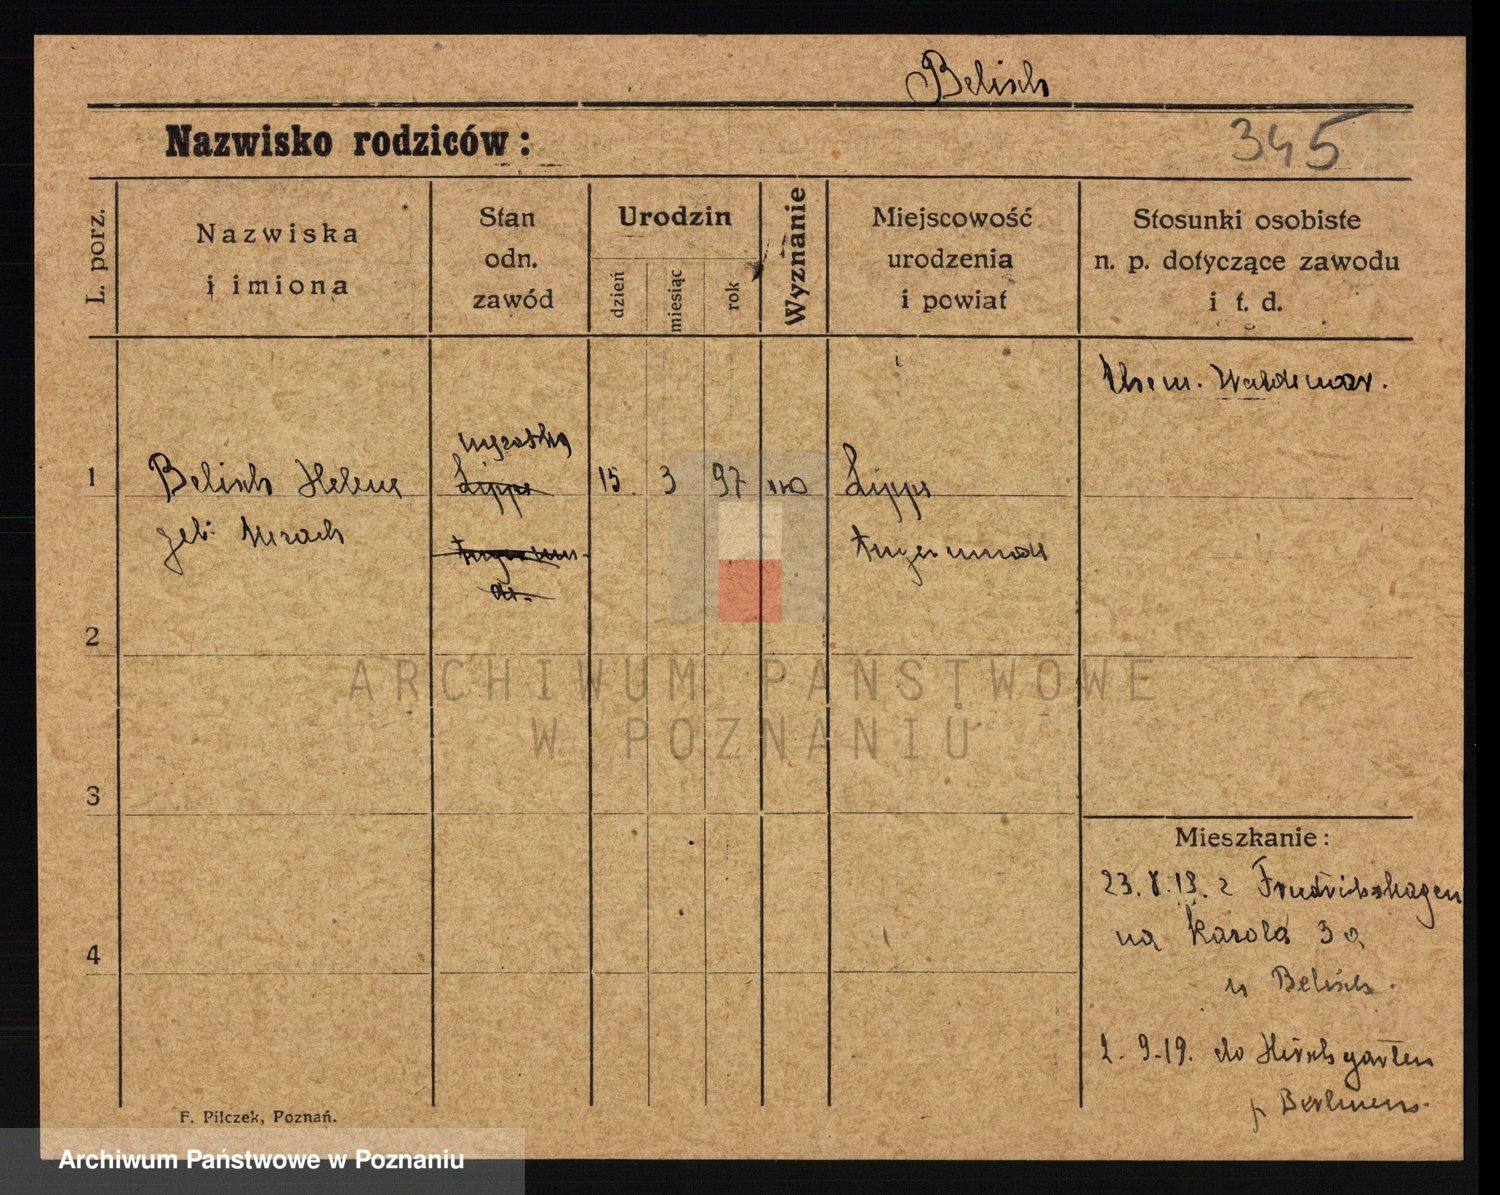 Belisch
Nazwisko rodziców :
345
L. porz.
Nazwiska
i imiona
Stan
odn.
zawód
Urodzin
dzień
miesiąc
rok
Wyznanie
Miejscowość
urodzenia
i powiat
Stosunki osobiste
n. p. dotyczące zawodu
i t. d.
Waldemar.
1
Belisch Helene
geb.
Lipps
15. 3 97
Lipps
2
3
4
Mieszkanie :
23. 18. z Friedrichshagen
na Karola 3a
u Belisch.
2. 9.19. do Hirschgarten
p
F. Pilczek, Poznań.
ARCHIWUM PAŃSTWOWE
W POZNANIU
Archiwum Państwowe w Poznaniu